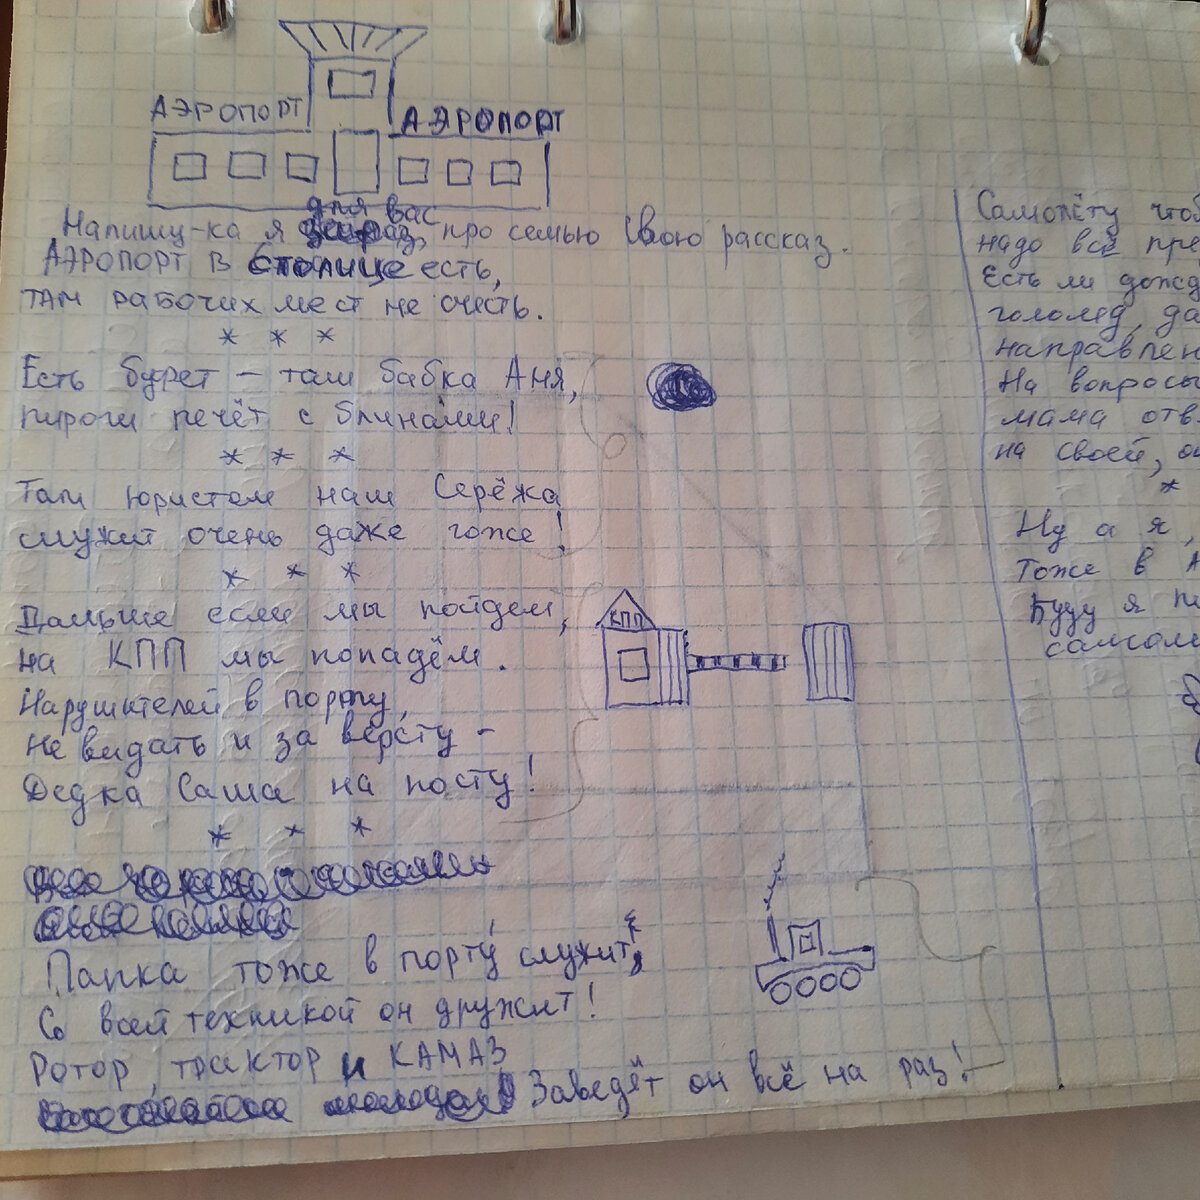 АЭРОПОРТ
АЭРОПОРТ
для вас
Напишу-ка я про семью свою рассказ.
АЭРОПОРТ в столице есть,
там рабочих мест не счесть.
* * *
Есть буфет – там бабка Аня,
пироги печёт с блинами!
* * *
Там юристом наш Серёжа
служит очень даже гоже!
* * *
Дальше если мы пойдём,
на КПП мы попадём.
Нарушителей в порту,
не видать и за версту –
Дедка Саша на посту!
* * *
КПП
Папка тоже в порту́ служит,
Со всей техникой он дружит!
Ротор, трактор и КАМАЗ
Заведёт он всё на раз!
Самолёту чтоб
надо всё пре
Есть ли дожд
гололёд, да
направлен
На вопросы
мама отв
на своей, о
*
Ну а я,
Тоже в А
Буду я п
самол